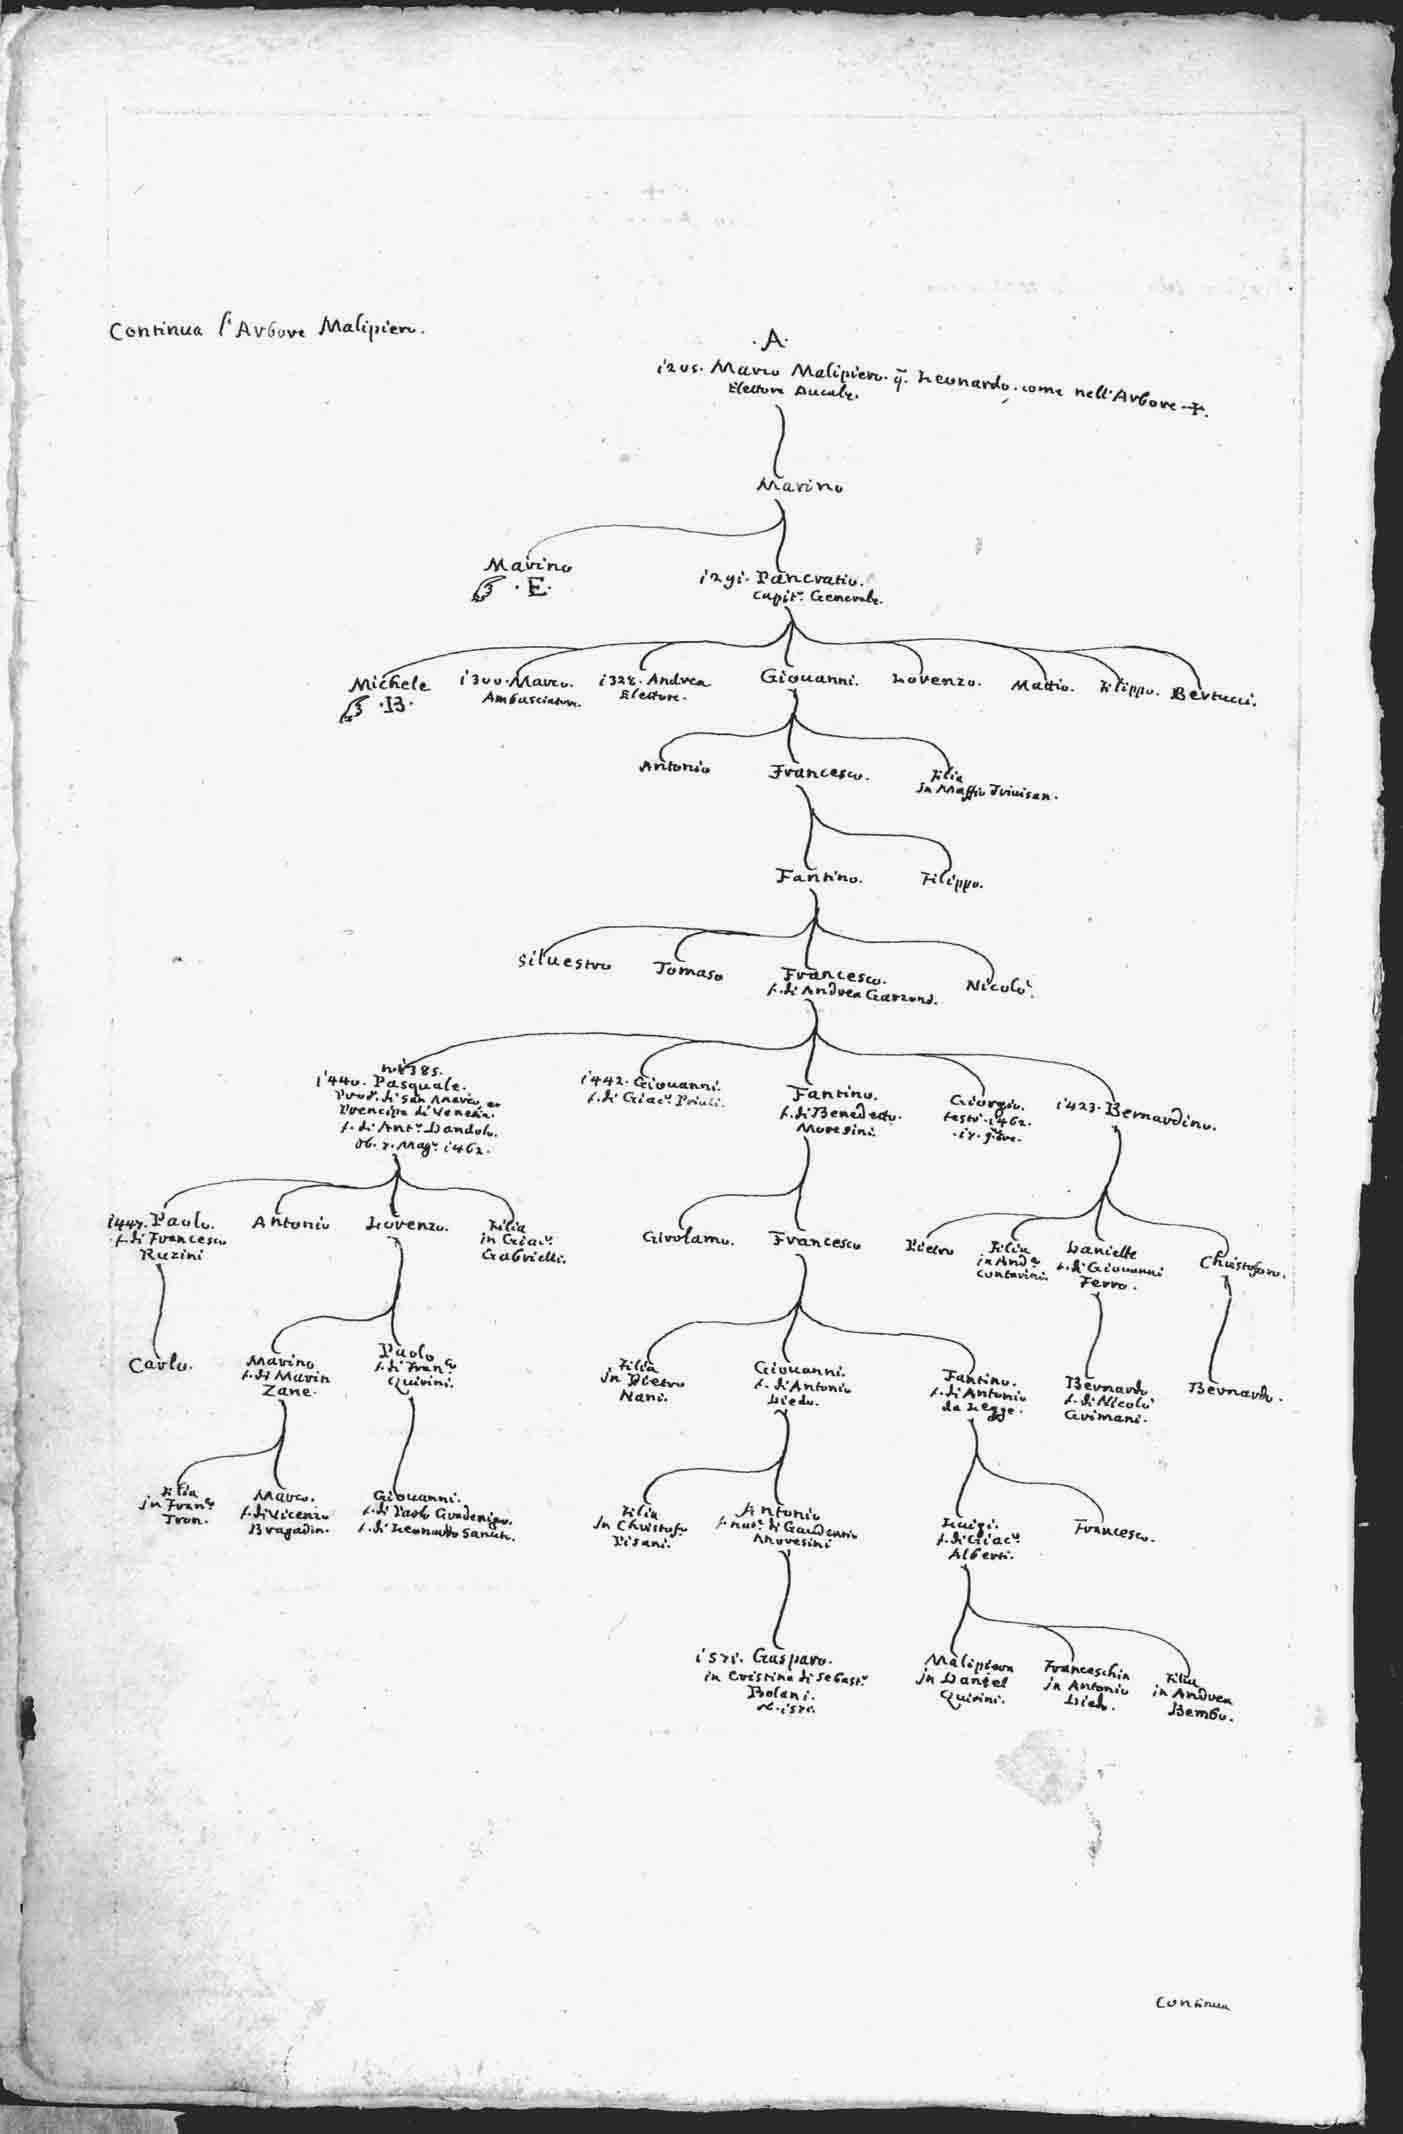 Continua l'Arbore Malipiero.
.A.
i205. Marco Malipiero. q. Leonardo. come nell'Arbore +.
Elettore Ducale.
Marino
Marino
.E.
i291. Pancratio.
Capit.o Generale.
Michele
.B.
i300. Marco.
Ambasciator.
i328. Andrea
Elettore.
Giouanni.
Lorenzo.
Mattio.
Filippo.
Bertucci.
Antonio
Francesco.
Filia
in Maffio Triuisan.
Fantino.
Filippo.
Siluestro
Tomaso
Francesco.
f. di Andrea Garzoni.
Nicolò.
n. i385.
i440. Pasquale.
Proc.r di San Marco, et
Prencipe di Venetia.
f. di Ant.o Dandolo.
ob. 7. Mag.o i462.
i442. Giouanni.
f. di Giac.o Priuli.
Fantino.
f. di Benedetto.
Moresini.
Giorgio.
testò i462.
i423. Bernardino.
i447. Paolo.
f. di Francesco
Ruzini
Antonio
Lorenzo.
Filia
in Giac.o
Gabrielli.
Girolamo.
Francesco
Pietro
Filia
in And.a
Contarini.
Danielle
f. di Giouanni
Ferro.
Christoforo.
Carlo.
Marino
f. di Marin
Zane.
Paolo
f. di Fran.co
Quirini.
Filia
in Pietro
Nani.
Giouanni.
f. di Antonio
Diedo.
Fantino.
f. di Antonio
da Legge.
Bernardo
f. di Nicolò
Grimani.
Bernardo.
Filia
in Fran.co
Tron.
Marco.
f. di Vicenzo
Bragadin.
Giouanni.
f. di Paolo Gradenigo.
f. di Leonardo Sanuto.
Filia
in Christofo
Pisani.
Antonio
f. nat.e di Gaudentio
Moresini
Luigi.
f. di Giac.o
Alberti.
Francesco.
i571. Gasparo.
in Cristina di Sebast.o
Bolani.
Malipiera
in Daniel
Quirini.
Franceschin
in Antonio
Diedo.
Filia
in Andrea
Bembo.
Continua